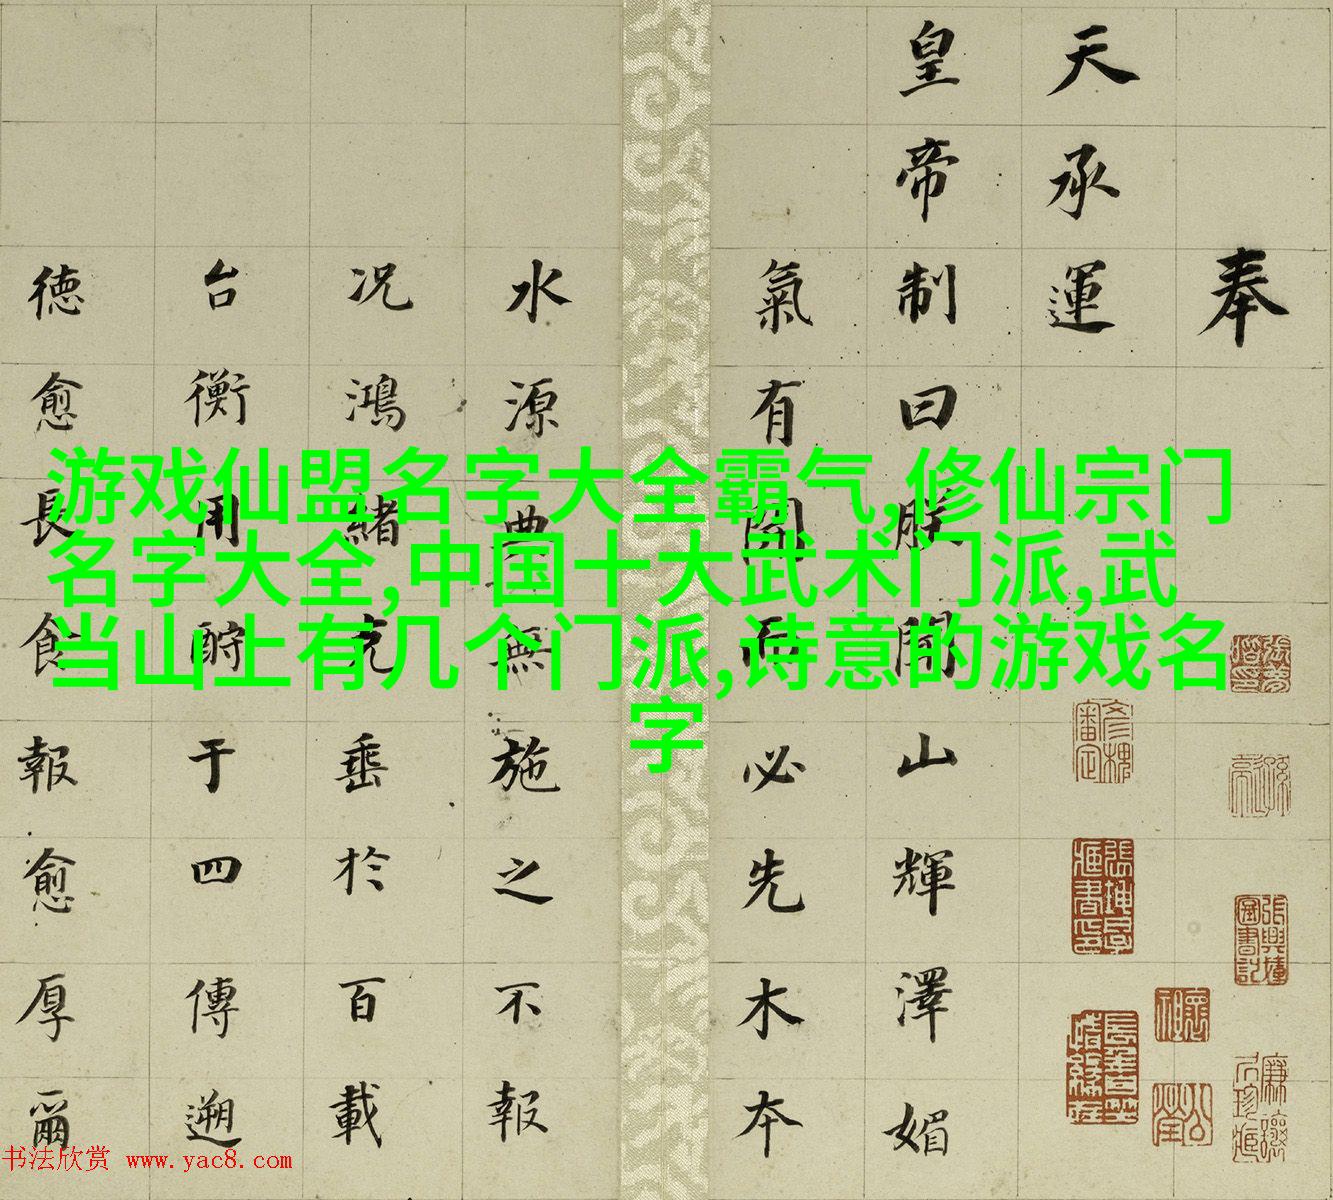 奉
天承運
皇帝制曰朕聞山輝澤媚
氣有而必先木本
水源典無施之不報
况鴻緒克垂於百載
台衡用于四傳遡
德愈長食報愈厚爾
游戏仙盟名字大全霸气,修仙宗门
名字大全,中国十大武术门派,武
当山上有几个门派,诗意的游戏名
字
书法欣赏 www.yac8.com